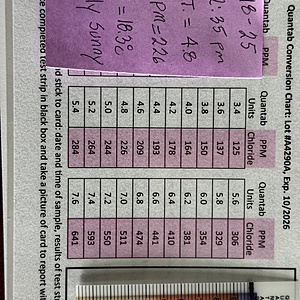 Quantab Conversion Chart: Lot #A4290A, Exp. 10/2026
PPM Quantab PPM Quantab PPM
Units Chloride Units Chloride
3.4 125 5.6 306
3.6 137 5.8 329
3.8 150 6.0 354
4.0 164 6.2 381
4.2 178 6.4 410
4.4 193 6.6 441
4.6 209 6.8 474
4.8 226 7.0 511
5.0 244 7.2 550
5.2 264 7.4 593
5.4 284 7.6 641
8-25
2:35 pm
T. = 4.8
PPM=226
= 18.3°c
ly Sunny
d stick to card: date and time of sample, results of test st
e completed test strip in black box and take a picture of card to report wit